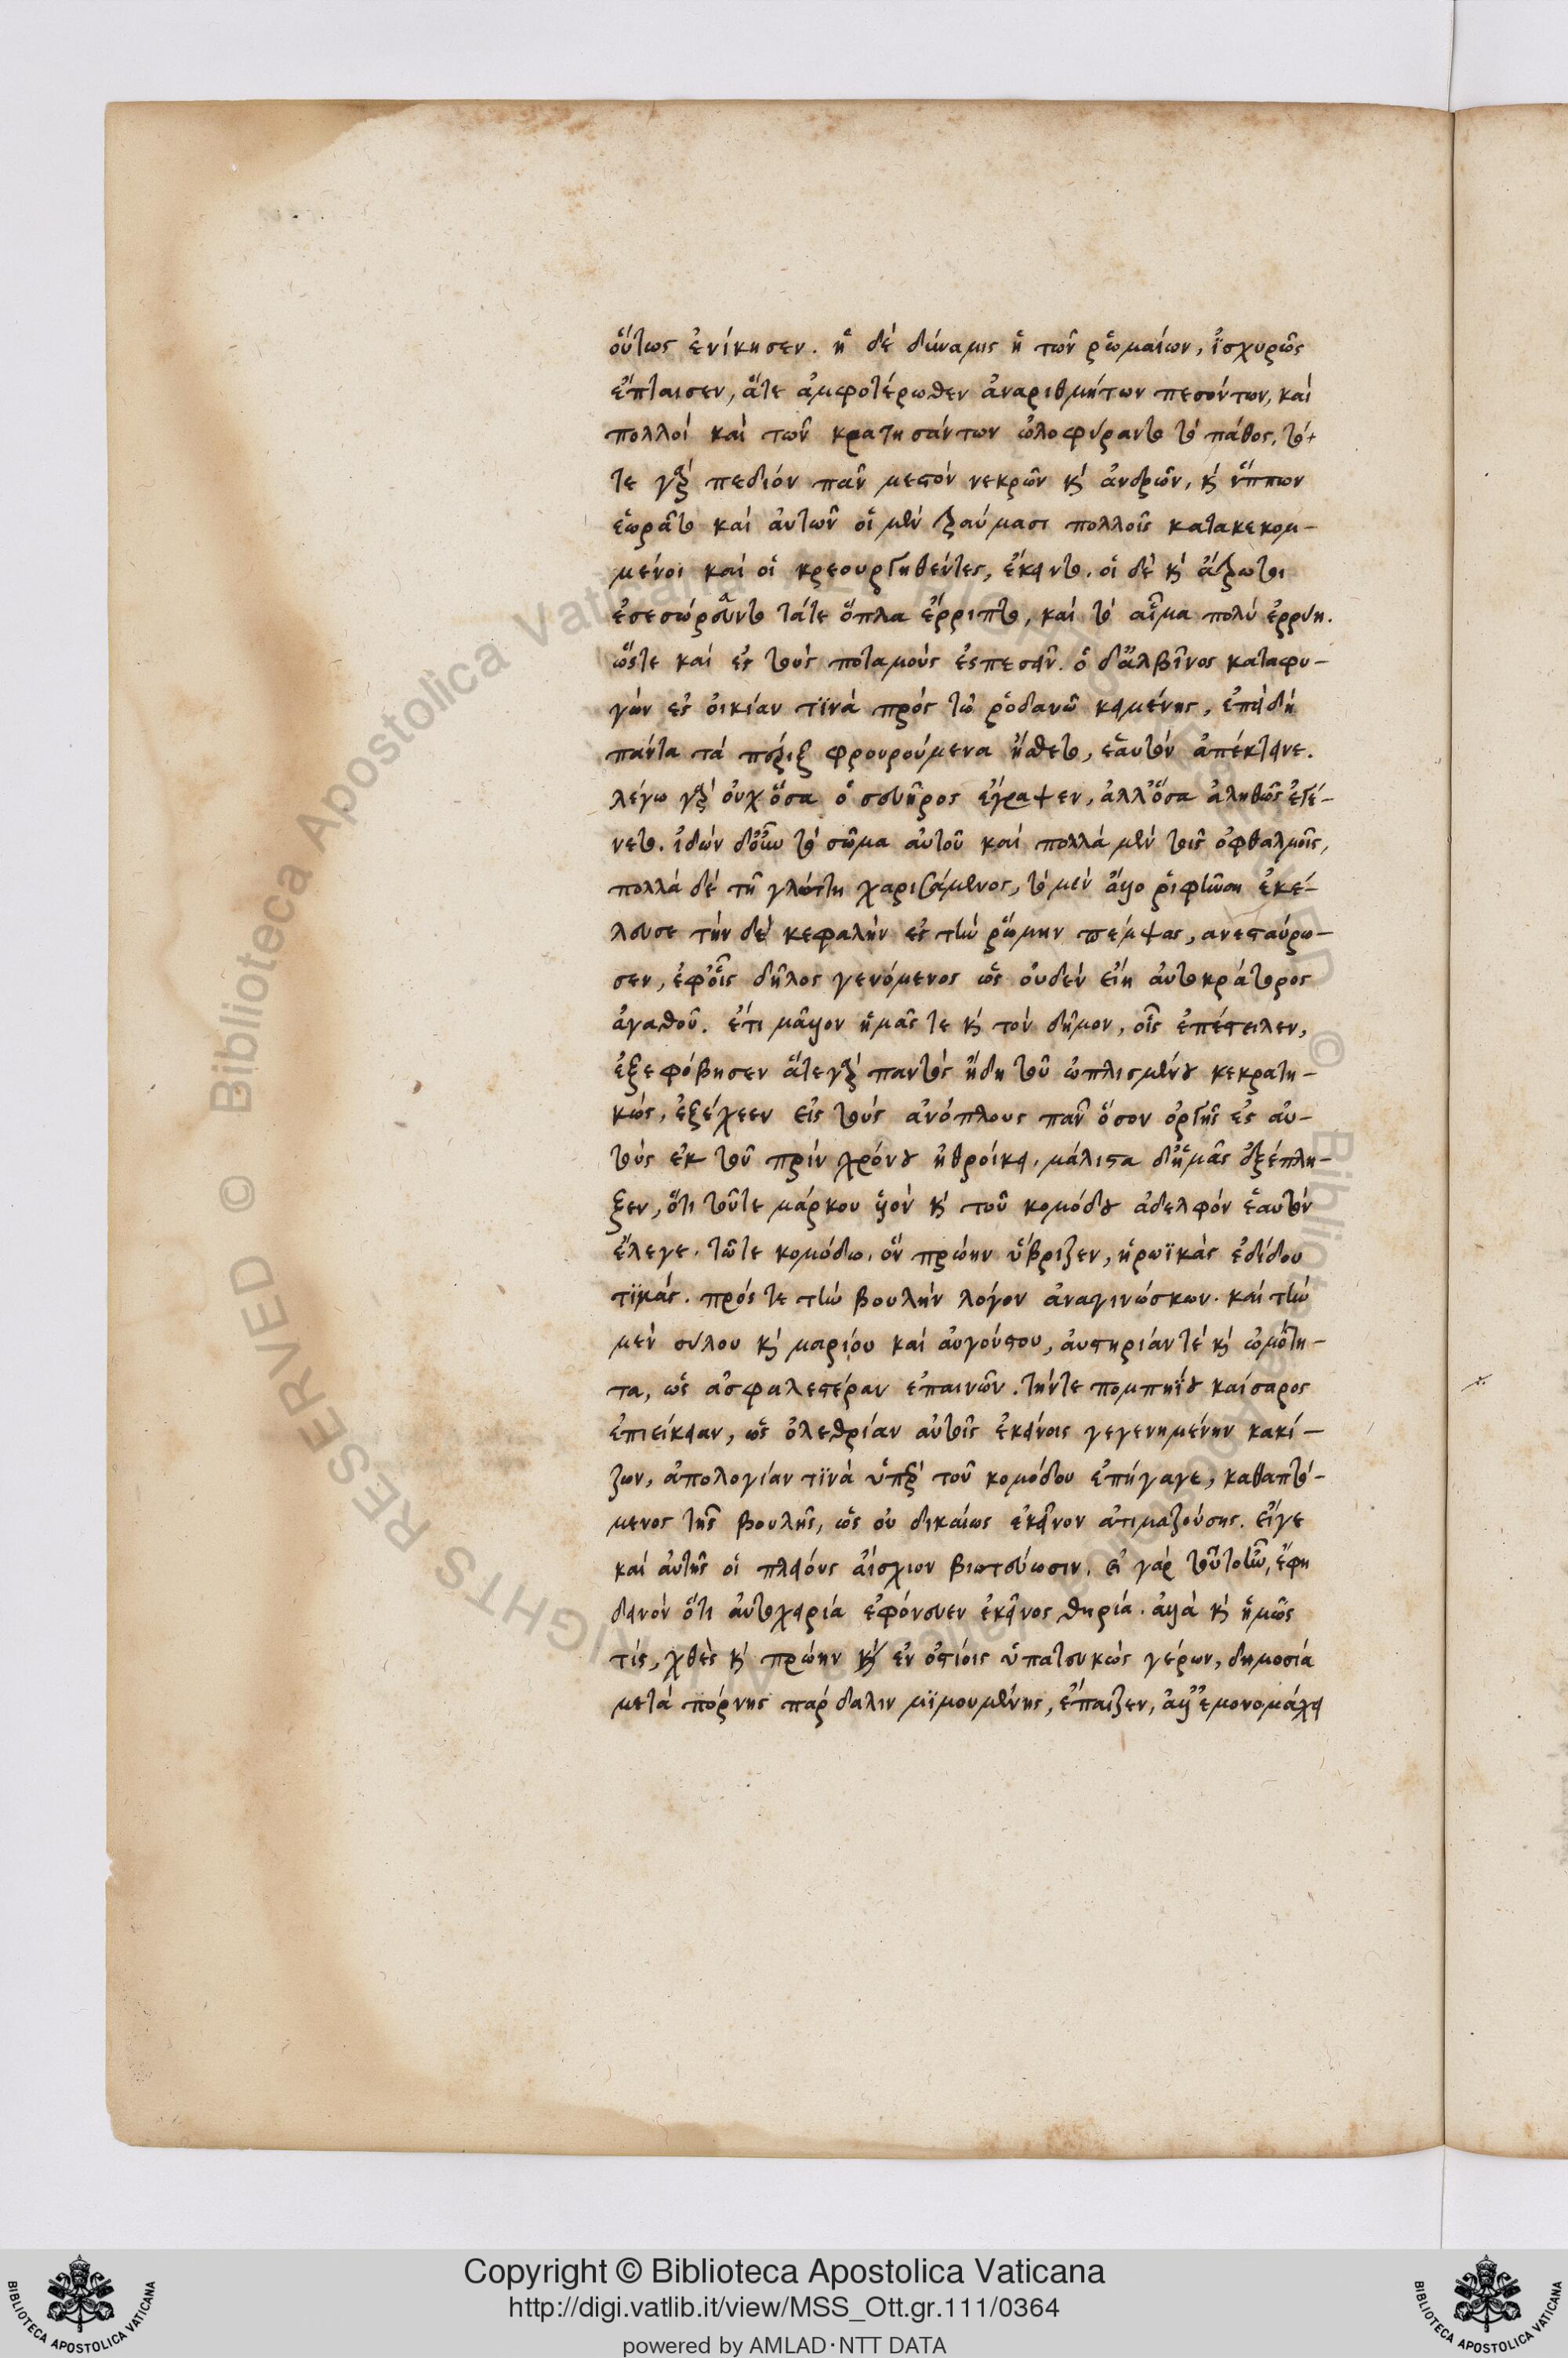 οὕτως ἐνίκησεν. ἡ δὲ δύναμις ἡ τῶν ῥωμαίων, ἰσχυρῶς
ἔπταισεν, ἅτε ἀμφοτέρωθεν ἀναριθμήτων πεσόντων, καὶ
πολλοὶ καὶ τῶν κρατησάντων ὠλοφύραντο τὸ πάθος, τό-
τε γὰρ πεδίον πᾶν μεστὸν νεκρῶν κὶ ἀνδρῶν, κὶ ἵππων
ἑωρᾶτο καὶ αὐτῶν οἱ μὲν τραύμασι πολλοῖς κατακεκομ-
μένοι καὶ οἱ κρεουργηθέντες, ἔκειντο. οἱ δὲ κὶ ἄτρωτοι
ἐσεσώρευντο τάτε ὅπλα ἔρριπτο, καὶ τὸ αἷμα πολὺ ἐρρύη.
ὥστε καὶ ἐς τοὺς ποταμοὺς ἐσπεσεῖν. ὁ δ' ἀλβῖνος καταφυ-
γὼν ἐς οἰκίαν τινὰ πρὸς τῷ ῥοδανῷ κειμένης, ἐπειδὴ
πάντα τὰ πέριξ φρουρούμενα ᾔσθετο, ἑαυτὸν ἀπέκτεινε.
λέγω γὰρ οὐχ ὅσα ὁ σευῆρος ἔγραψεν, ἀλλ' ὅσα ἀληθῶς ἐγέ-
νετο. ἰδὼν δ' οὖν τὸ σῶμα αὐτοῦ καὶ πολλὰ μὲν τοῖς ὀφθαλμοῖς,
πολλὰ δὲ τῇ γλώττῃ χαρισάμενος, τὸ μὲν ἄλλο ῥιφῆναι ἐκέ-
λευσε τὴν δὲ κεφαλὴν ἐς τὴν ῥώμην πέμψας, ἀνεσταύρω-
σεν, ἐφ' οἷς δῆλος γενόμενος ὡς οὐδὲν εἴη αὐτοκράτορος
ἀγαθοῦ. ἔτι μᾶλλον ἡμᾶς τε κὶ τὸν δῆμον, οἷς ἐπέστειλεν,
ἐξεφόβησεν ἅτε γὰρ παντὸς ἤδη τοῦ ὡπλισμένου κεκρατη-
κώς, ἐξέχεεν εἰς τοὺς ἀνόπλους πᾶν ὅσον ὀργῆς ἐς αὐ-
τοὺς ἐκ τοῦ πρὶν χρόνου ἠθροίκει. μάλιστα δ' ἡμᾶς ἐξέπλη-
ξεν, ὅτι τοῦτε μάρκου υἱὸν κὶ τοῦ κομόδου ἀδελφὸν ἑαυτὸν
ἔλεγε. τῷτε κομόδῳ, ὃν πρώην ὕβριζεν, ἡρωϊκὰς ἐδίδου
τιμάς. πρός τε τὴν βουλὴν λόγον ἀναγινώσκων. καὶ τὴν
μὲν σύλου κὶ μαρίου καὶ αὐγούστου, αὐστηρίαν τὲ κὶ ὠμότη-
τα, ὡς ἀσφαλεστέραν ἐπαινῶν. τήντε πομπηΐου καίσαρος
ἐπιείκειαν, ὡς ὀλεθρίαν αὐτοῖς ἐκείνοις γεγενημένην κακί-
ζων, ἀπολογίαν τινὰ ὑπὲρ τοῦ κομόδου ἐπήγαγε, καθαπτό-
μενος τῆς βουλῆς, ὡς οὐ δικαίως ἐκεῖνον ἀτιμαζούσης. εἴγε
καὶ αὐτῆς οἱ πλείους αἴσχιον βιοτεύωσιν. εἰ γὰρ τοῦτο ἦν, ἔφη
δεινὸν ὅτι αὐτοχειρίᾳ ἐφόνευεν ἐκεῖνος θηρία. ἀλλὰ κὶ ἡμῶς
τίς, χθὲς κὶ πρώην κὶ ἐν ὀστίοις ὑπατευκὼς γέρων, δημοσίᾳ
μετὰ πόρνης πάρδαλιν μιμουμένης, ἔπαιζεν, ἀλλ' ἐμονομάχει
Copyright © Biblioteca Apostolica Vaticana
http://digi.vatlib.it/view/MSS_Ott.gr.111/0364
powered by AMLAD·NTT DATA